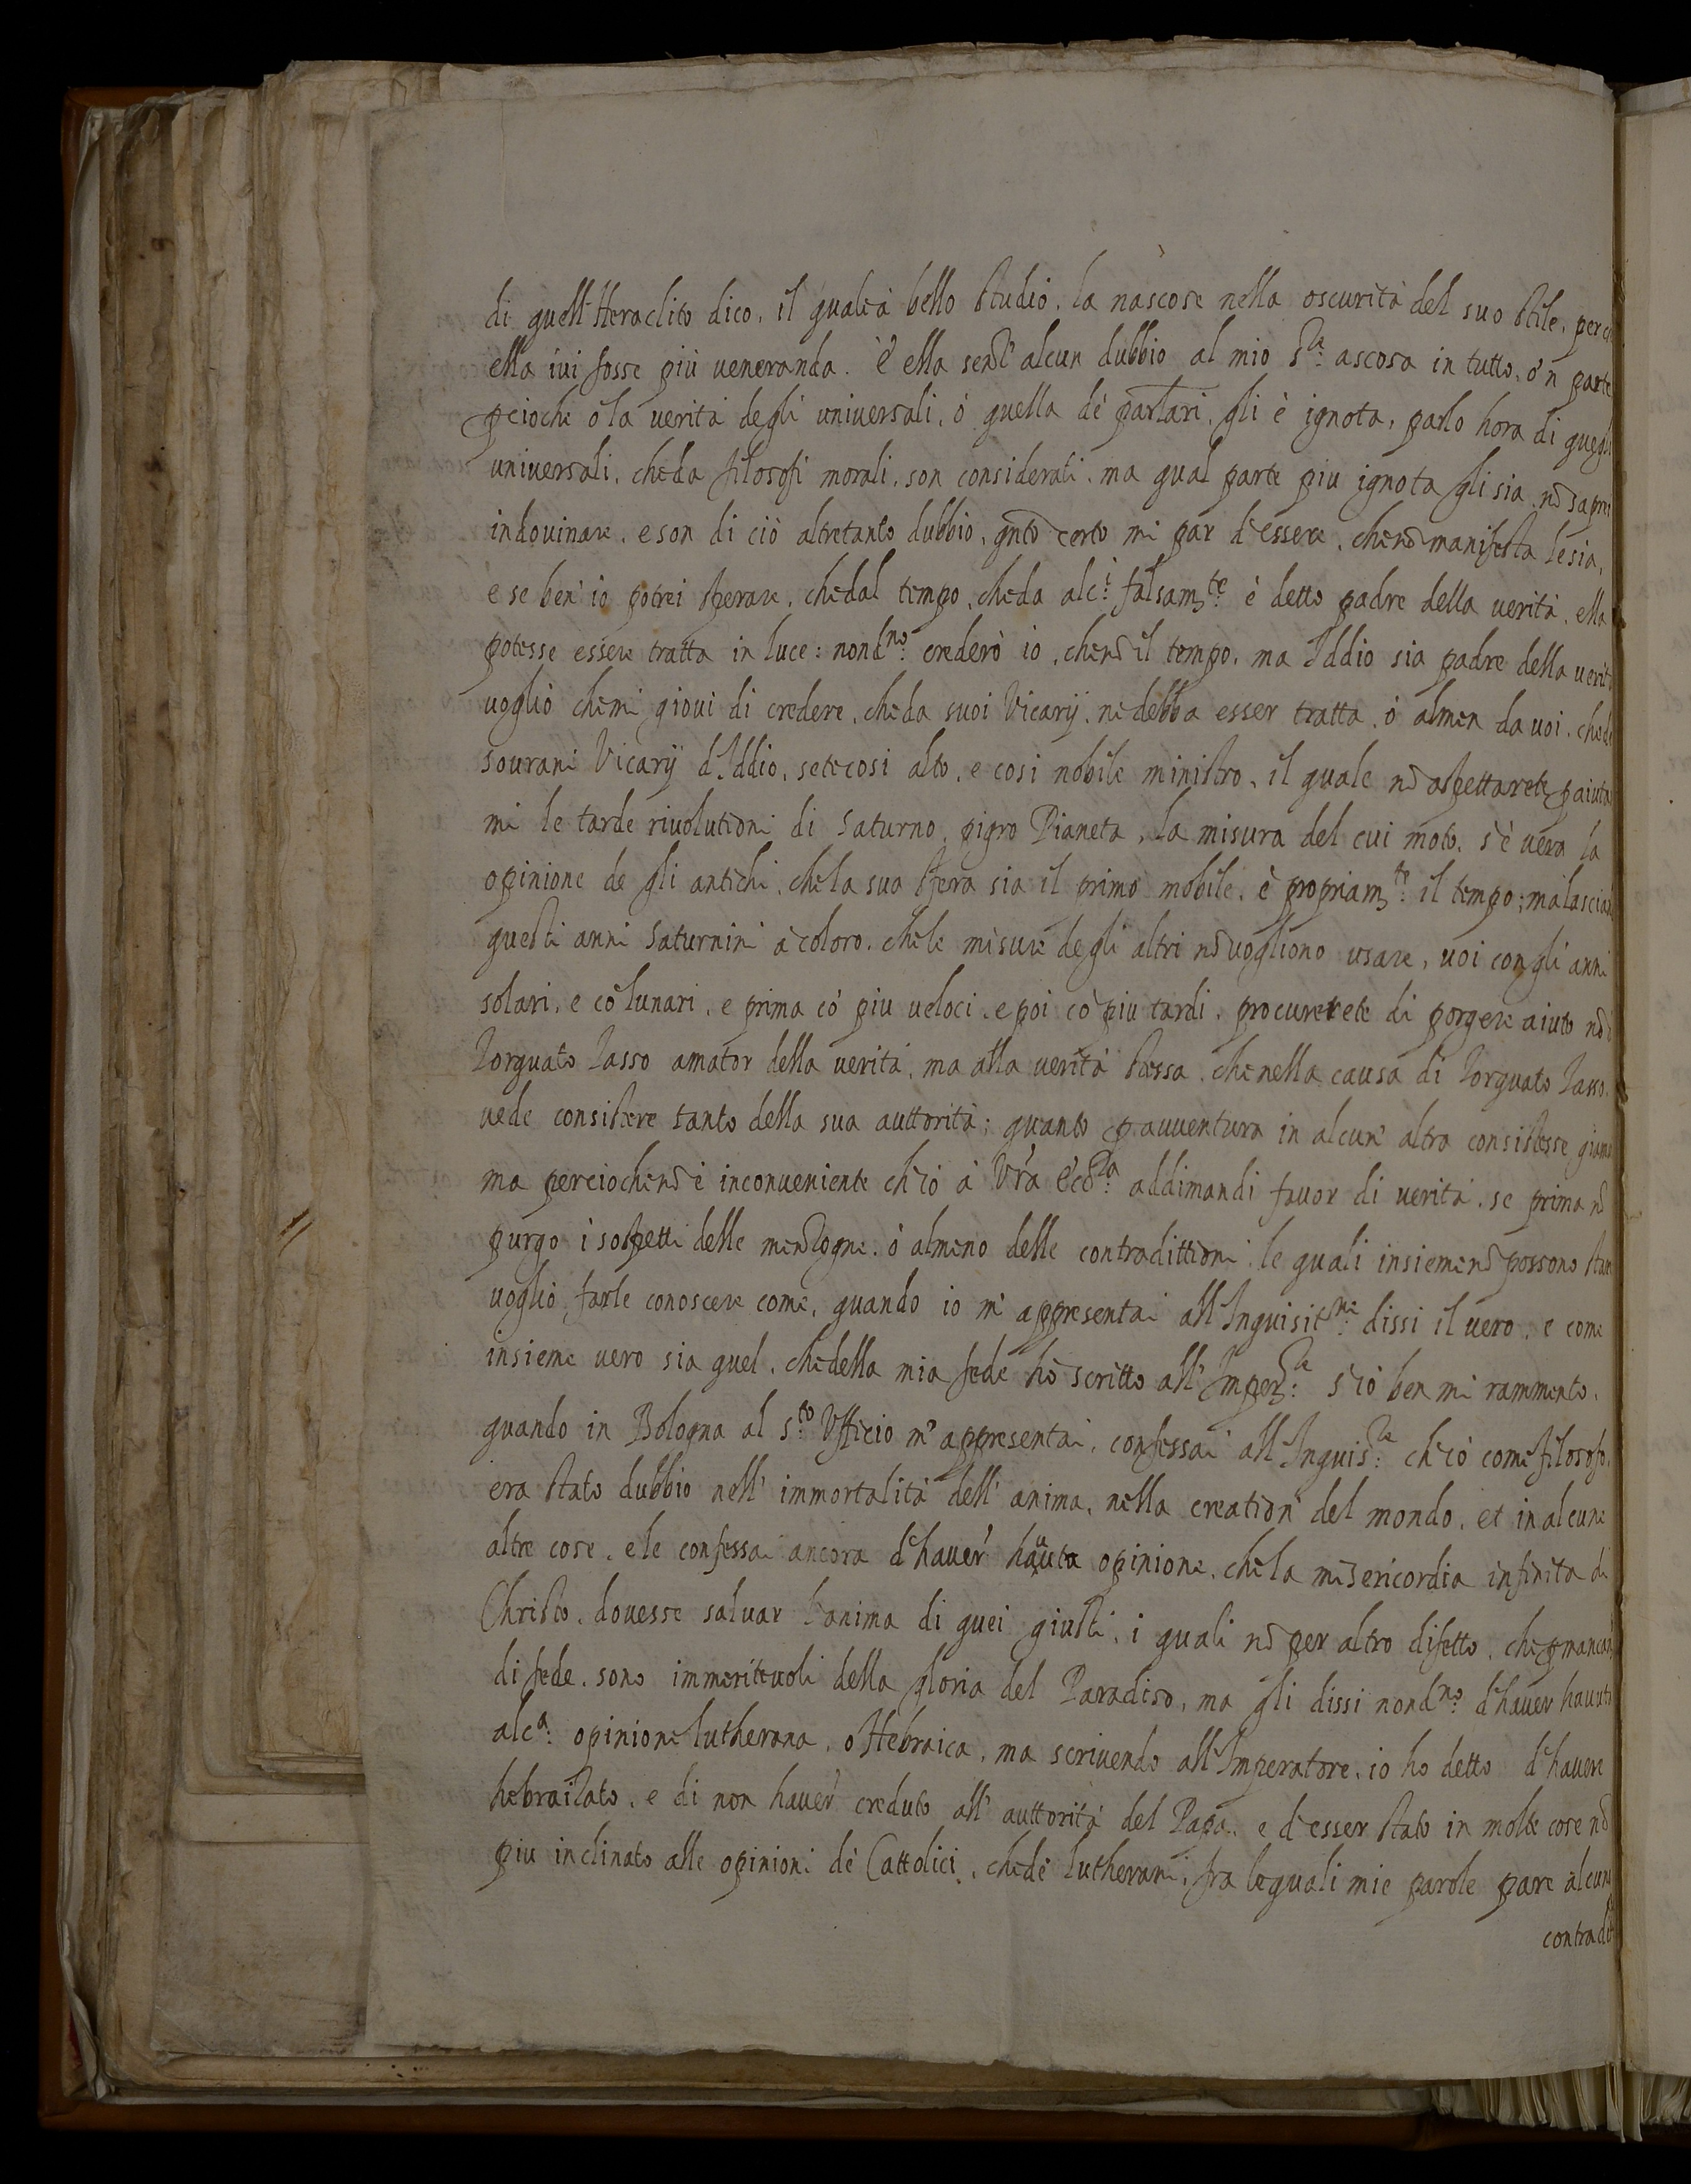 di quell'Heraclito dico, il quale à bello studio, la nascose nella oscurità del suo stile, perch
ella ivi fosse più veneranda. È ella senz'alcun dubbio al mio s.re ascosa in tutto, ò'n parte
pcioche ò la verità degli universali, ò quella de' parlari, gli è ignota, parlo hora di quegli
universali, che da filosofi morali, son considerati, ma qual parte piu ignota gli sia nõ saprei
indovinare, e son di ciò altretanto dubbio, qnto certo mi par d'essere, che nõ manifesta le sia,
e se ben' io potrei sperare, che dal tempo, che da alc.i falsam.te è detto padre della verità, ella
potesse essere tratta in luce: nond.no crederò io, che nõ il tempo, ma Iddio sia padre della verità
voglio che mi giovi di credere, che da suoi Vicarij, ne debba esser tratta, ò almen da voi, che de
sourani Vicarij d'Iddio, sete cosi alto, e cosi nobile ministro, il quale nõ aspettarete p aiutar
mi le tarde rivolutioni di Saturno, pigro Pianeta, la misura del cui moto, s'è vera la
opinione de gli antichi, che la sua sfera sia il primo mobile, è propriam.te il tempo; ma lascian
questi anni Saturnini à coloro, che le misure degli altri nõ vogliono usare, voi con gli anni
solari, e cõ lunari, e prima cõ piu veloci, e poi cõ piu tardi, procurerete di porgere aiuto nõ à
Torquato Tasso amator della verità, ma alla verità stessa, che nella causa di Torquato Tasso,
vede consistere tanto della sua auttorità; quanto p avventura in alcun' altra consistesse giamai
ma percioche nõ è inconveniente ch'iò à Vr̃a Ecc.za addimandi favor di verità, se prima nõ
purgo i sospetti delle menzogne, ò almeno delle contradittioni, le quali insieme nõ possono stare
voglio farle conoscere come, quando io m'appresentai all'Inquisit.ne dissi il vero, e come
insieme vero sia quel, che della mia fede hò scritto all'Imper.re s'iò ben mi rammento,
quando in Bologna al s.to Ufficio m'appresentai, confessai all'Inquis.re ch'iò come filosofo,
era stato dubbio nell'immortalità dell'anima, nella creation' del mondo, et in alcune
altre cose, e le confessai ancora d'haver' hauuta opinione, che la misericordia infinita di
Christo, dovesse salvar l'anima di quei giusti, i quali nõ per altro difetto, che p mancar
di fede, sono immeritevoli della gloria del Paradiso, ma gli dissi nond.no d'haver havuto
alc.a opinione lutherana, ò Hebraica, ma scrivendo all'Imperatore, io ho detto d'havere
hebraizato, e di non haver' creduto all'auttorità del Papa, e d'esser stato in molte cose nõ
piu inclinato alle opinioni de' Cattolici, che de' lutherani, fra le quali mie parole pare alcuna
contradit